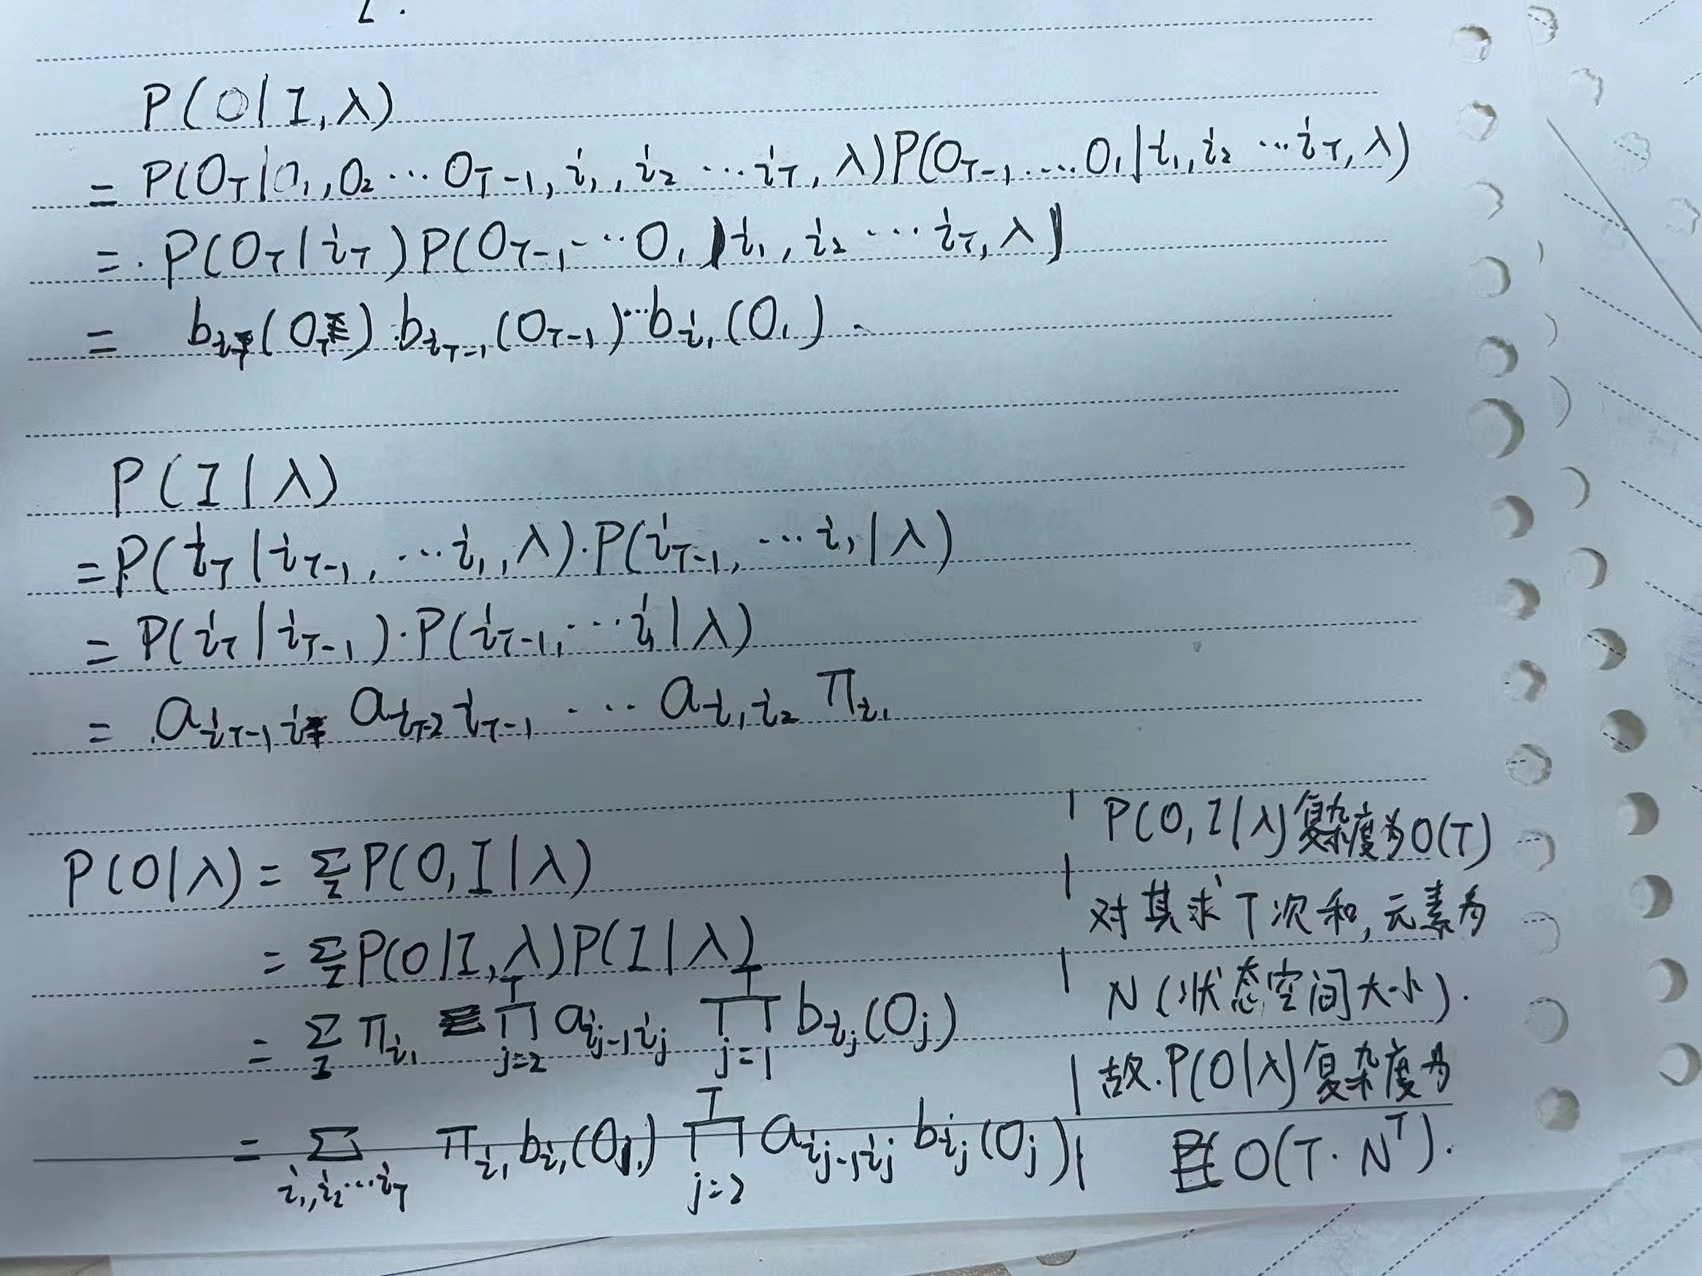 P(O|I,λ)
= P(O_T|O_1,O_2⋯O_{T-1},i_1,i_2⋯i_T,λ)P(O_{T-1},⋯O_1|i_1,i_2⋯i_T,λ)
= P(O_T|i_T)P(O_{T-1}⋯O_1|i_1,i_2⋯i_T,λ)
= b_{i_T}(O_T) b_{i_{T-1}}(O_{T-1})⋯b_{i_1}(O_1).
P(I|λ)
=P(i_T|i_{T-1},⋯i_1,λ)·P(i_{T-1},⋯i_1|λ)
= P(i_T|i_{T-1})·P(i_{T-1},⋯i_1|λ)
= a_{i_{T-1}i_T} a_{i_{T-2}i_{T-1}}⋯a_{i_1i_2} π_{i_1}
P(O|λ) = Σ_I P(O,I|λ)
= Σ_I P(O|I,λ)P(I|λ)
= Σ_I π_{i_1} ∏_{j=2}^{T} a_{i_{j-1}i_j} ∏_{j=1}^{T} b_{i_j}(O_j)
= Σ_{i_1,i_2⋯i_T} π_{i_1} b_{i_1}(O_1) ∏_{j=2}^{T} a_{i_{j-1}i_j} b_{i_j}(O_j)
P(O,I|λ)复杂度为O(T)
对其求T次和,元素为
N(状态空间大小).
故.P(O|λ)复杂度为
O(T·N^T).